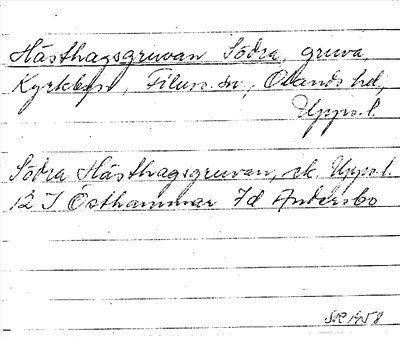 Hästhagsgruvan Södra, gruva
Kyrkbyn, Films sn, Olands hd,
Upps. l.
Södra Hästhagsgruvan, ek Upps. l.
12 I Östhammar 7d Andersbo
1958